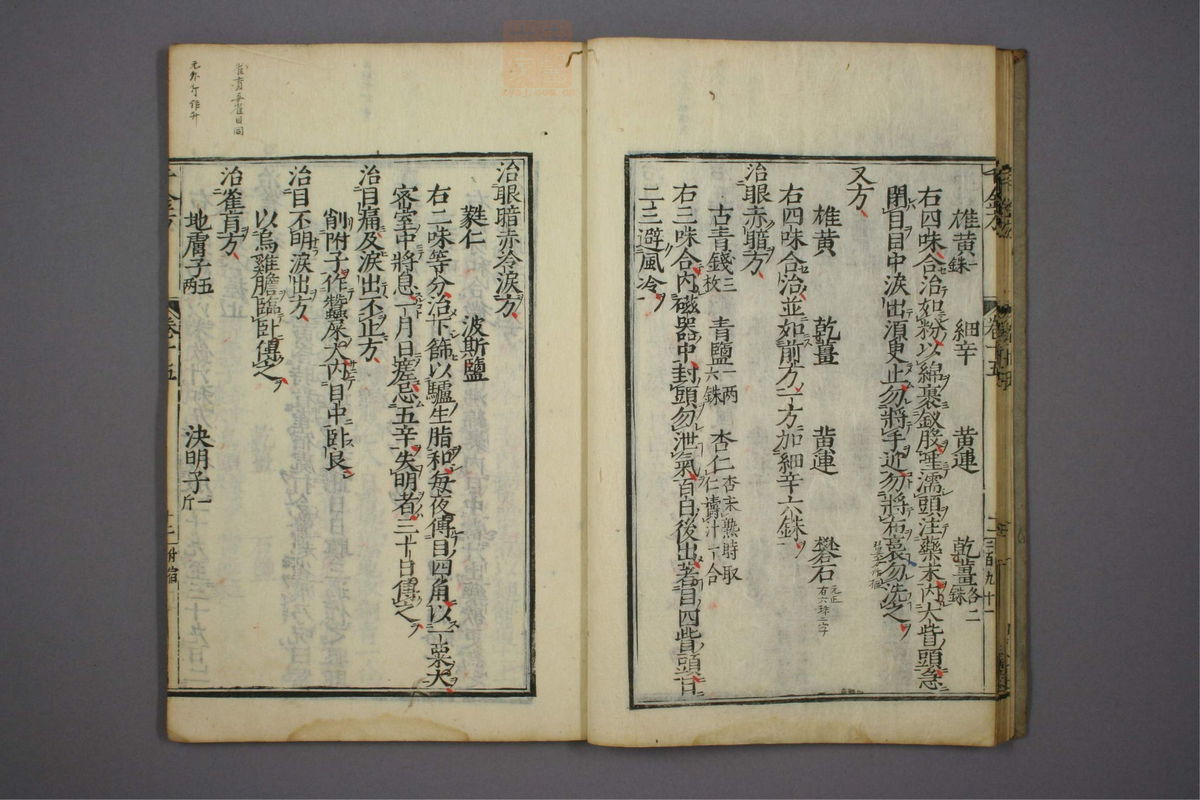 雄黄一銖 細辛 黄連 乾薑各二銖
右四味合治如粉以綿裹釵股唾濡頭注藥末內大眥頭急
閉目目中淚出須臾止勿將手近勿將布裹勿洗之
又方
雄黄 乾薑 黄連 礬石
右四味合治並如前方一方加細辛六銖
治眼赤暗方
古青錢三枚 青鹽一兩六銖 杏仁杏末熟時取仁漬汁一合
右三味合內磁器中封頭勿泄氣百日後出著目四眥頭日
二三避風冷
治眼暗赤冷淚方
蕤仁 波斯鹽
右二味等分治下篩以驢生脂和每夜傅目四角以一粟大
密室中將息一月日瘥忌五辛失明者三十日傅之
治目痛及淚出不止方
削附子作蠶屎大內目中卧良
治目不明淚出方
以烏雞膽臨卧傅之
治雀盲方
地膚子五兩 決明子一斤
卷十五